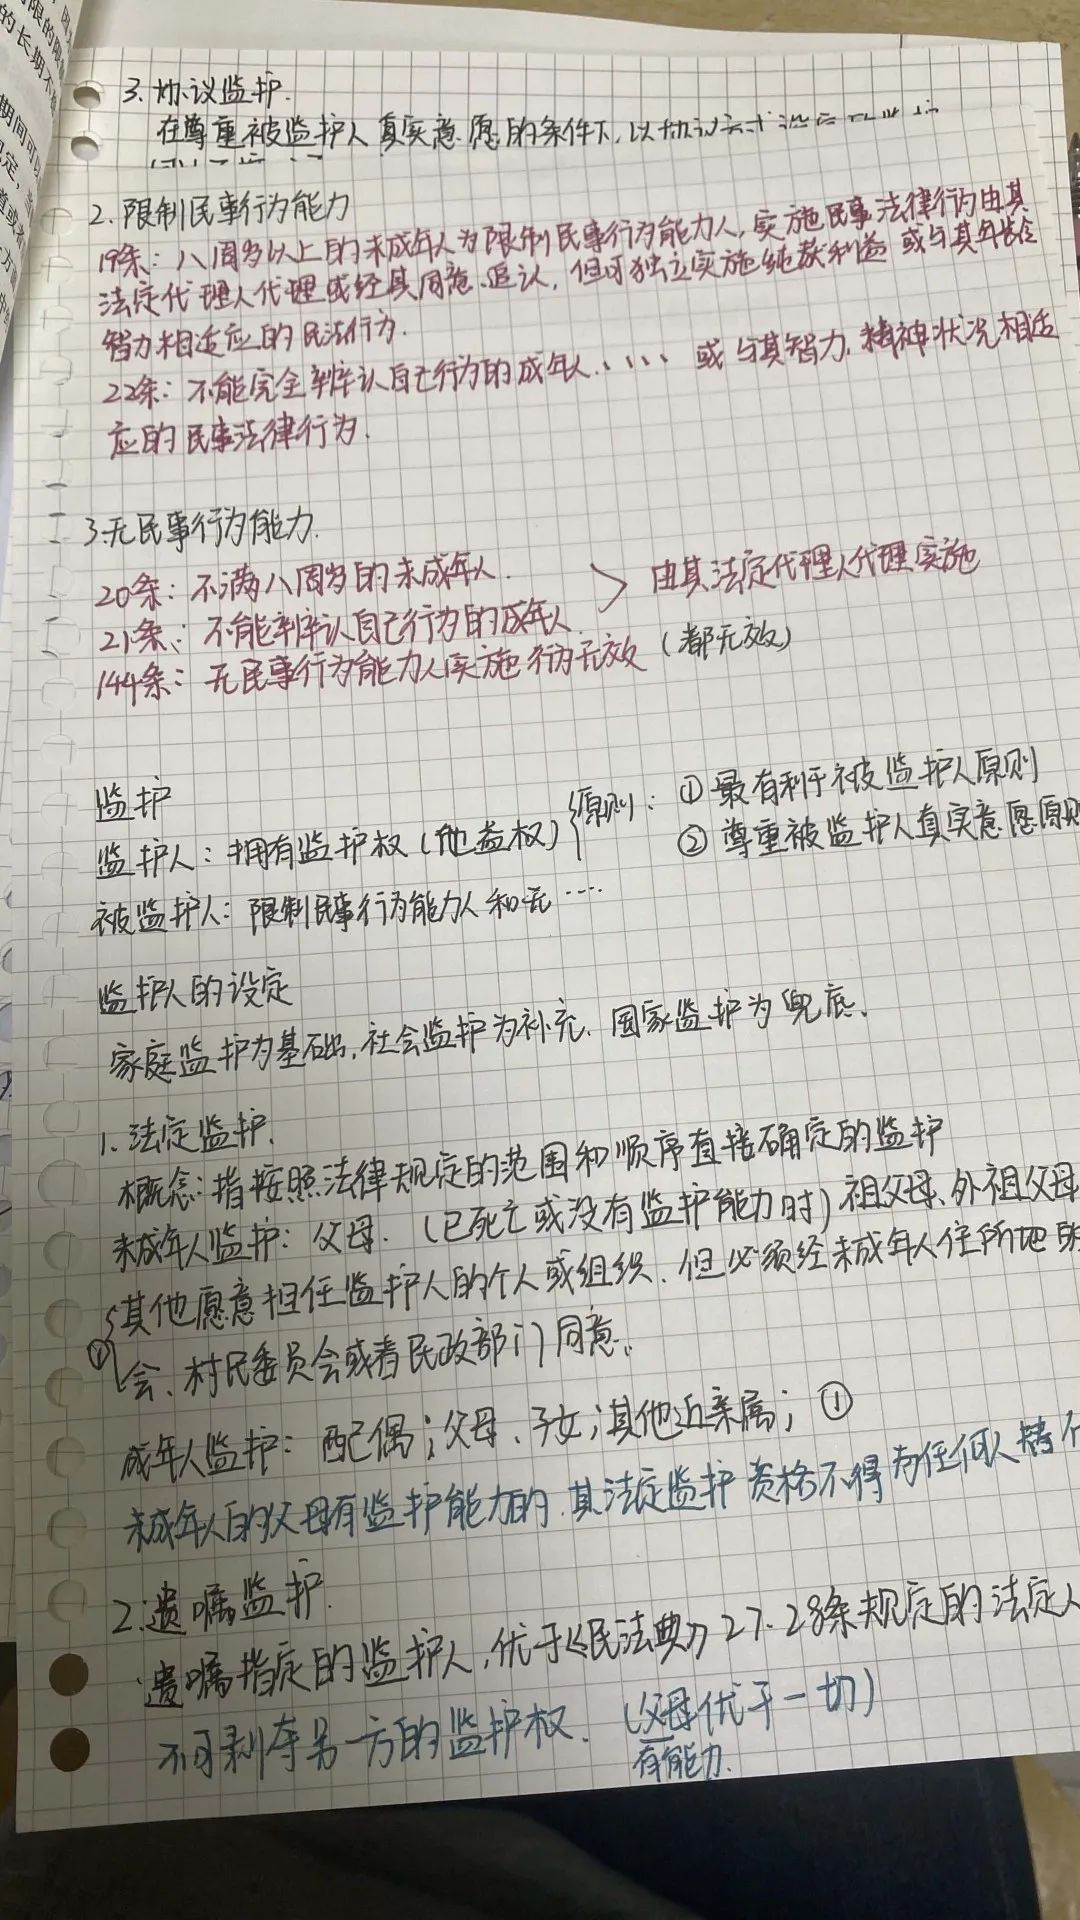 3.协议监护.
在尊重被监护人真实意愿的条件下,以协议方式
2.限制民事行为能力
19条:八周岁以上的未成年人为限制民事行为能力人,实施民事法律行为由其
法定代理人代理或经其同意、追认,但可独立实施纯获利益或与其年龄
智力相适应的民法行为.
22条:不能完全辨认自己行为的成年人、、、、或与其智力,精神状况相适
应的民事法律行为.
3.无民事行为能力.
20条:不满八周岁的未成年人.
21条:不能辨认自己行为的成年人
> 由其法定代理人代理实施
144条:无民事行为能力人实施行为无效(都无效)
监护
监护人:拥有监护权(他益权)
原则:①最有利于被监护人原则
②尊重被监护人真实意愿原则
被监护人:限制民事行为能力人和无····
监护人的设定
家庭监护为基础,社会监护为补充、国家监护为兜底.
1.法定监护.
概念:指按照法律规定的范围和顺序直接确定的监护
未成年人监护:父母.(已死亡或没有监护能力时)祖父母、外祖父母
①其他愿意担任监护人的个人或组织.但必须经未成年人住所地
会、村民委员会或者民政部门同意.
成年人监护:配偶;父母、子女;其他近亲属;①
未成年人的父母有监护能力的.其法定监护资格不得为任何人替
2.遗嘱监护.
遗嘱指定的监护人,优于《民法典》27.28条规定的法定人
不可剥夺另一方的监护权.(父母优于一切)
有能力.
期间可以
的长期不